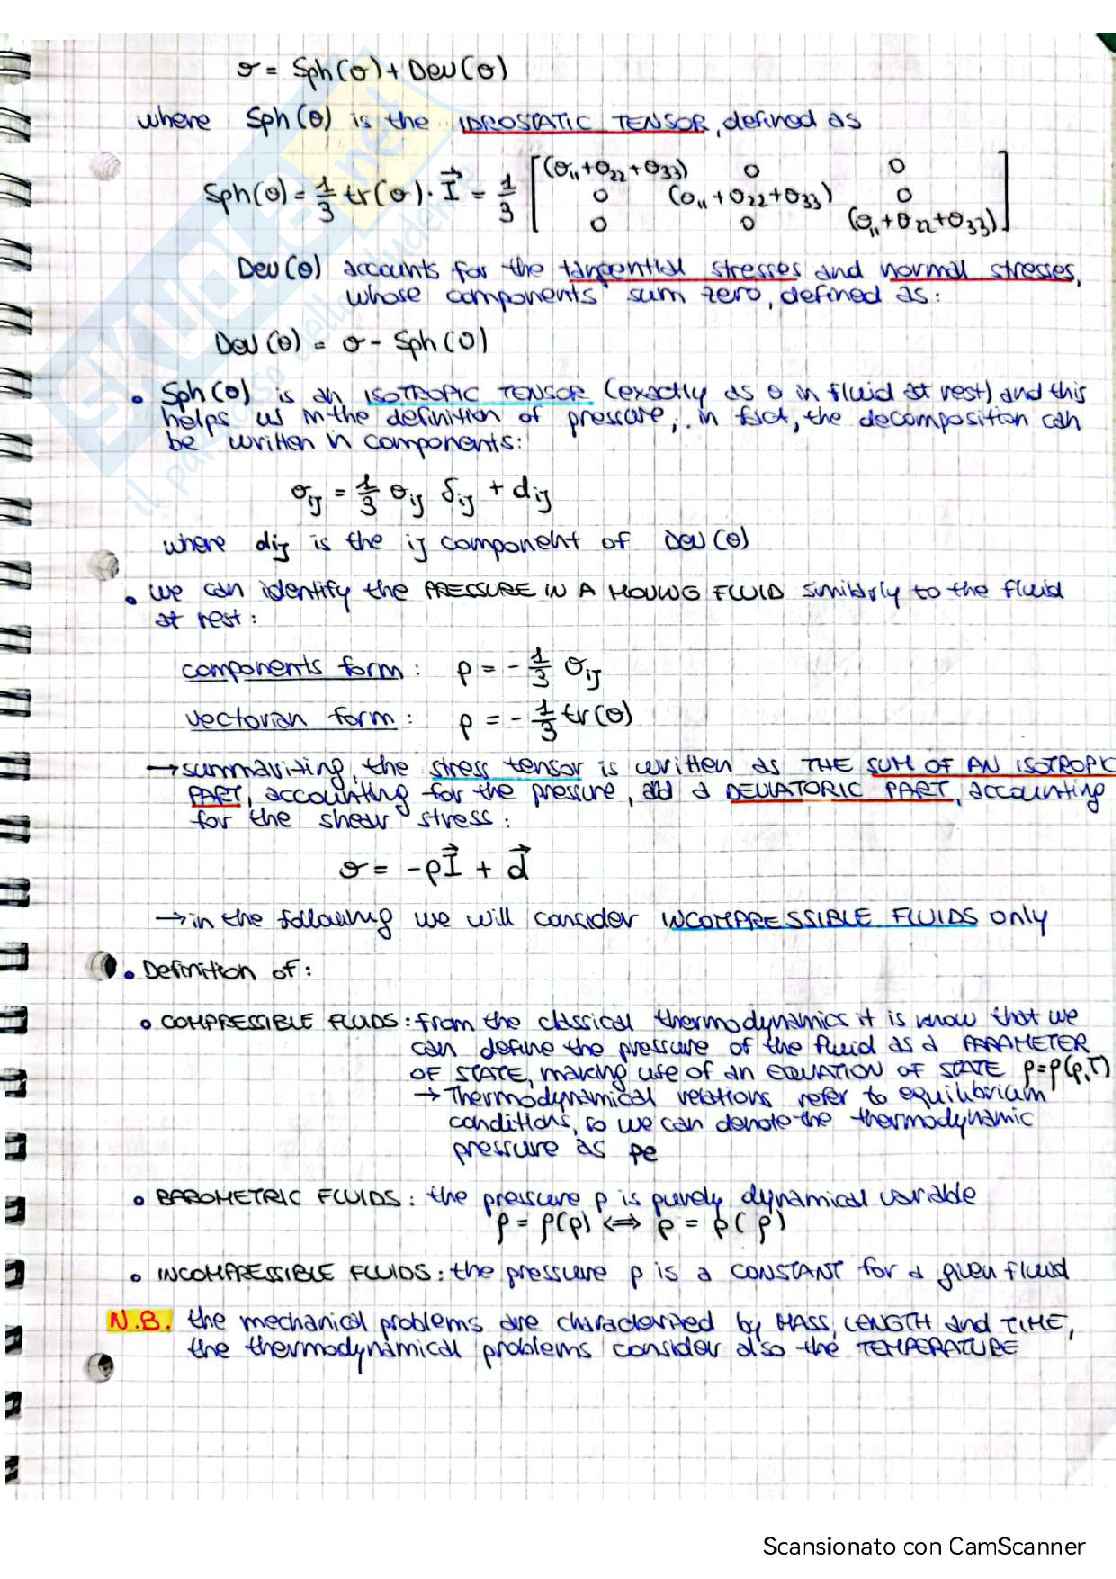 σ = Sph(σ) + Dev(σ)
where Sph(σ) is the IDROSTATIC TENSOR, defined as
Sph(σ) = 1/3 tr(σ) · I⃗ = 1/3 [ (σ₁₁+σ₂₂+σ₃₃) 0 0
0 (σ₁₁+σ₂₂+σ₃₃) 0
0 0 (σ₁₁+σ₂₂+σ₃₃) ]
Dev(σ) accounts for the tangential stresses and normal stresses,
whose components sum zero, defined as:
Dev(σ) = σ - Sph(σ)
• Sph(σ) is an ISOTROPIC TENSOR (exactly as σ in fluid at rest) and this
helps us in the definition of pressure, in fact, the decomposition can
be written in components:
σij = 1/3 σij δij + dij
where dij is the ij component of Dev(σ)
• we can identify the PRESSURE IN A MOVING FLUID similarly to the fluid
at rest:
components form: p = - 1/3 σij
vectorian form: p = - 1/3 tr(σ)
→ summarizing, the stress tensor is written as THE SUM OF AN ISOTROPIC
PART, accounting for the pressure, and a DEVIATORIC PART, accounting
for the shear stress:
σ = -pI⃗ + d⃗
→ in the following we will consider INCOMPRESSIBLE FLUIDS only
• Definition of:
◦ COMPRESSIBLE FLUIDS: from the classical thermodynamics it is know that we
can define the pressure of the fluid as a PARAMETER
OF STATE, making use of an EQUATION OF STATE ρ=ρ(p,T)
→ Thermodynamical relations refer to equilibrium
conditions, so we can denote the thermodynamic
pressure as pe
◦ BAROMETRIC FLUIDS: the pressure p is purely dynamical variable
ρ = ρ(p) ⟺ p = p(ρ)
◦ INCOMPRESSIBLE FLUIDS: the pressure ρ is a CONSTANT for a given fluid
N.B. the mechanical problems are characterized by MASS, LENGTH and TIME,
the thermodynamical problems consider also the TEMPERATURE
Scansionato con CamScanner